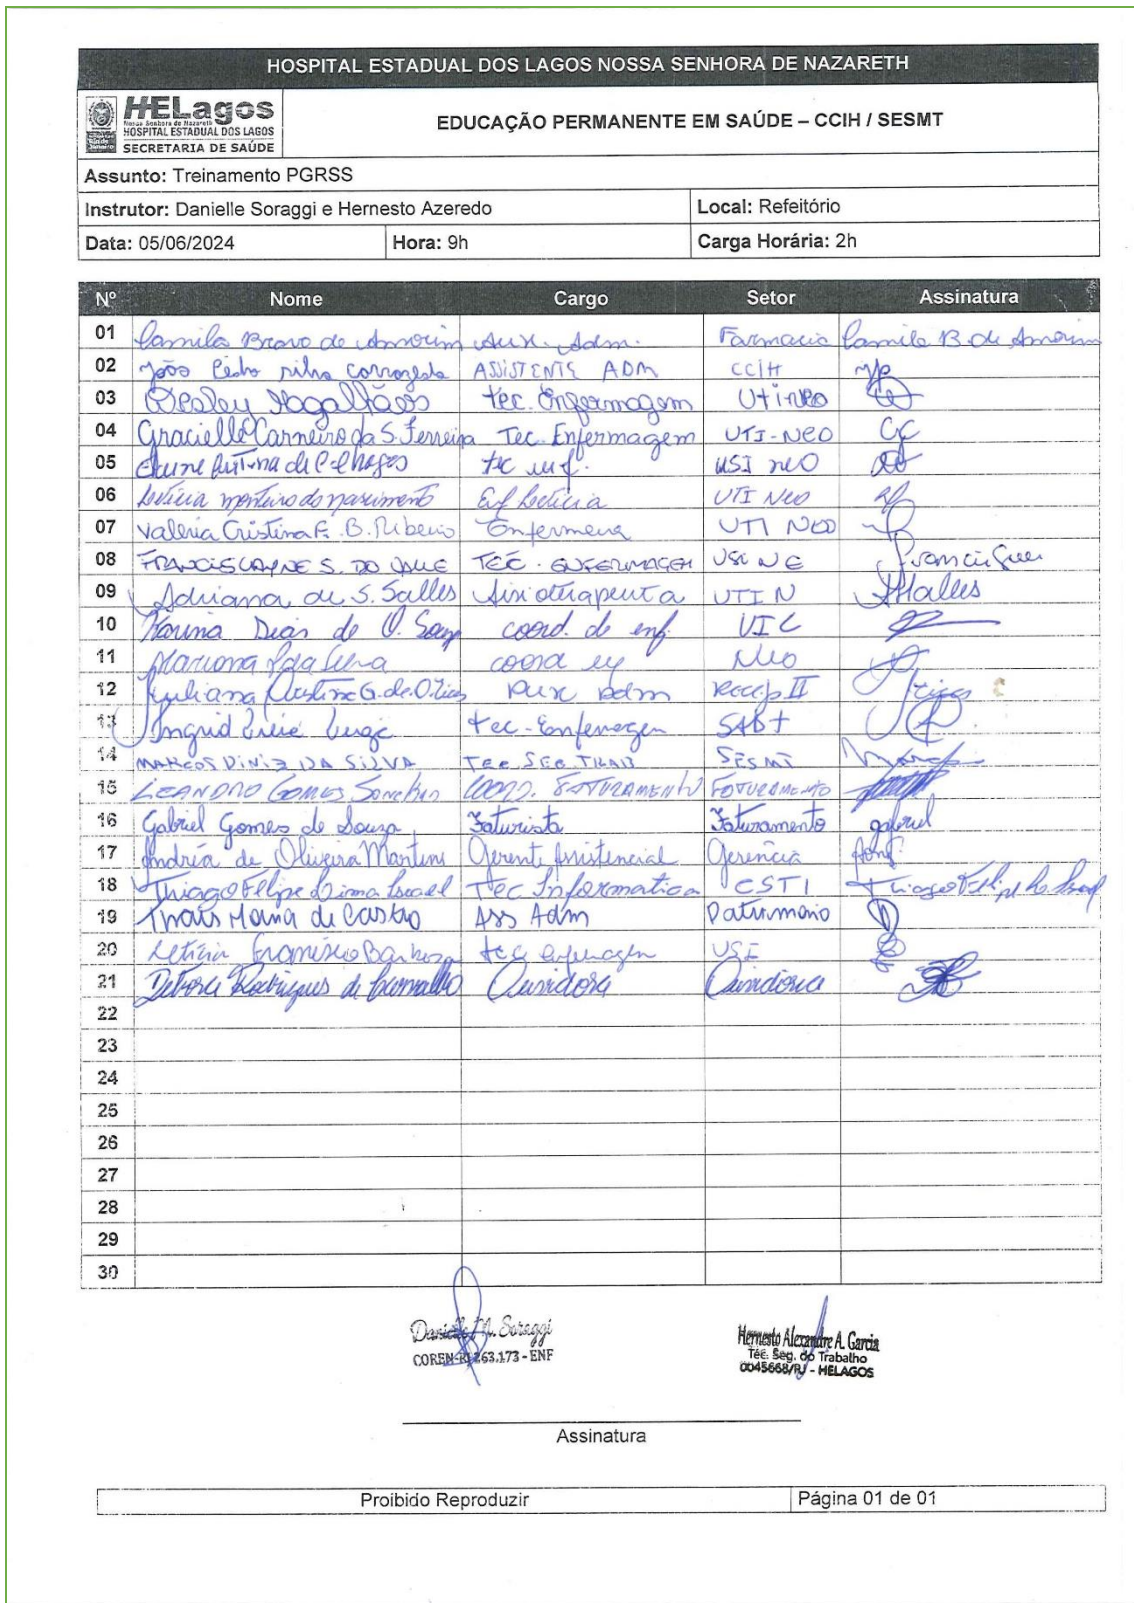 HOSPITAL ESTADUAL DOS LAGOS NOSSA SENHORA DE NAZARETH
HELagos
Nossa Senhora de Nazareth
HOSPITAL ESTADUAL DOS LAGOS
SECRETARIA DE SAÚDE
EDUCAÇÃO PERMANENTE EM SAÚDE – CCIH / SESMT
Assunto: Treinamento PGRSS
Instrutor: Danielle Soraggi e Hernesto Azeredo Local: Refeitório
Data: 05/06/2024 Hora: 9h Carga Horária: 2h
Nº Nome Cargo Setor Assinatura
01 Camila Bravo de Amorim Aux. Adm. Farmacia Camila B. de Amorim
02 João Pedro ASSISTENTE ADM CCIH
03 Wesley Magalhães tec. Enfermagem Utineo
04 Gracielle Carneiro da S. Ferreira Tec. Enfermagem UTI-NEO
05 tec enf. USI neo
06 Leticia monteiro do nascimento Enf Leticia UTI Neo
07 Valéria Cristina F. B. Ribeiro Enfermeira UTI NEO
08 FRANCISLAYNE S. DO VALLE TEC. ENFERMAGEM
09 Adriana de S. Salles fisioterapeuta UTI N
10 Karina Dias de O. coord. de enf.
11 Mariana da Silva coord Neo
12 Juliana Cristine G. de Aux Adm Recep II
13 Ingrid tec-Enfermagem SADT
14 MARCOS DINIZ DA SILVA TEC SEG TRAB SESMT
15 LEANDRO GOMES COORD. FATURAMENTO FATURAMENTO
16 Gabriel Gomes de Souza Faturista Faturamento gabriel
17 Andréa de Oliveira Martins Gerente Assistencial Gerência
18 Thiago Felipe Lima Tec Informatica CSTI Thiago Felipe
19 Thais Maria de Castro Ass Adm Patrimonio
20 Leticia Francisco Barbosa tec enfermagem USI
21 Debora Rodrigues de Carvalho Ouvidora Ouvidoria
22
23
24
25
26
27
28
29
30
Danielle M. Soraggi
COREN-RJ 263.173 - ENF
Hernesto Alexandre A. Garcia
Téc. Seg. do Trabalho
0045668/RJ - HELAGOS
Assinatura
Proibido Reproduzir Página 01 de 01